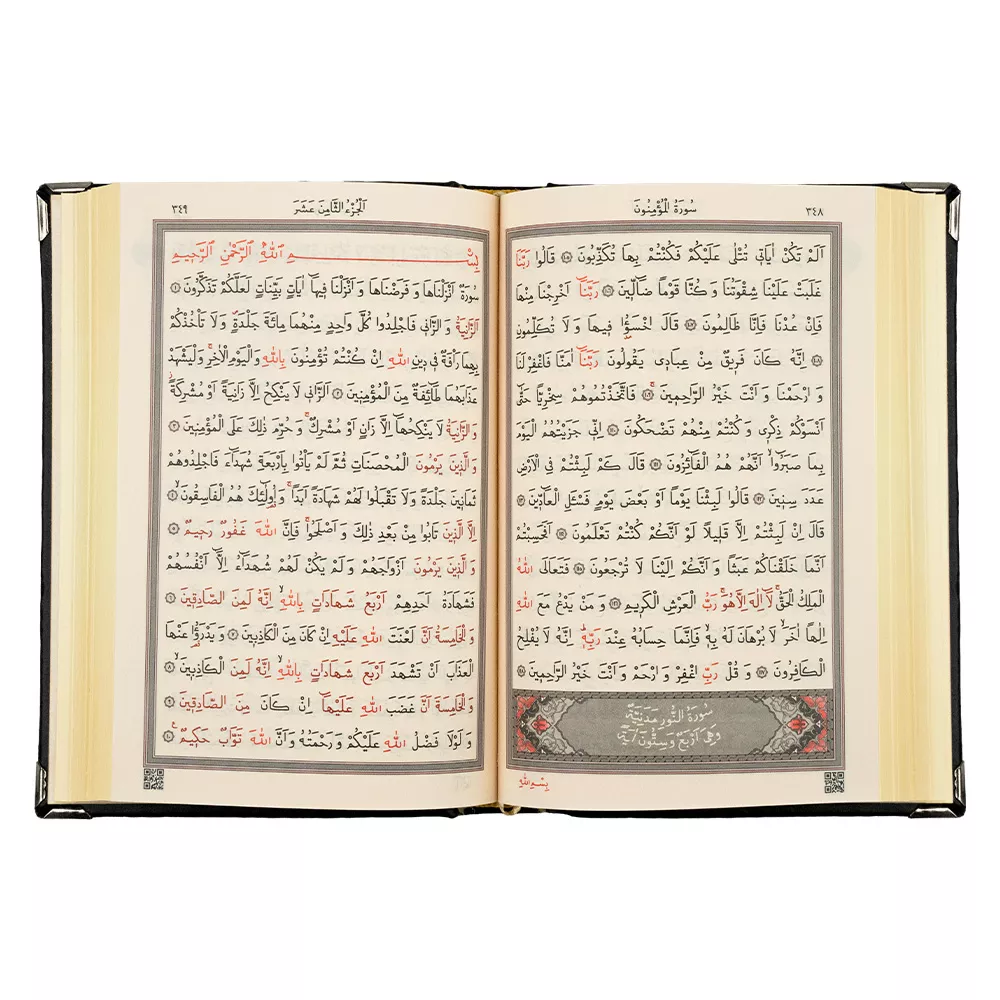 ٣٤٨
سُورَةُ الْمُؤْمِنُونَ
اَلَمْ تَكُنْ اٰيَاتٖي تُتْلٰى عَلَيْكُمْ فَكُنْتُمْ بِهَا تُكَذِّبُونَ ١٠٥ قَالُوا رَبَّنَا
غَلَبَتْ عَلَيْنَا شِقْوَتُنَا وَ كُنَّا قَوْمًا ضَٓالّٖينَ ١٠٦ رَبَّنَٓا اَخْرِجْنَا مِنْهَا
فَاِنْ عُدْنَا فَاِنَّا ظَالِمُونَ ١٠٧ قَالَ اخْسَؤُ۫ا فٖيهَا وَ لَا تُكَلِّمُونِ
١٠٨ اِنَّهُ كَانَ فَرٖيقٌ مِنْ عِبَادٖي يَقُولُونَ رَبَّنَٓا اٰمَنَّا فَاغْفِرْ لَنَا
وَ ارْحَمْنَا وَ اَنْتَ خَيْرُ الرَّاحِمٖينَ ١٠٩ فَاتَّخَذْتُمُوهُمْ سِخْرِيًّا حَتّٰٓى
اَنْسَوْكُمْ ذِكْرٖي وَ كُنْتُمْ مِنْهُمْ تَضْحَكُونَ ١١٠ اِنّٖي جَزَيْتُهُمُ الْيَوْمَ
بِمَا صَبَرُٓوا اَنَّهُمْ هُمُ الْفَٓائِزُونَ ١١١ قَالَ كَمْ لَبِثْتُمْ فِي الْاَرْضِ
عَدَدَ سِنٖينَ ١١٢ قَالُوا لَبِثْنَا يَوْمًا اَوْ بَعْضَ يَوْمٍ فَسْـَٔلِ الْعَٓادّٖينَ ١١٣
قَالَ اِنْ لَبِثْتُمْ اِلَّا قَلٖيلًا لَوْ اَنَّكُمْ كُنْتُمْ تَعْلَمُونَ ١١٤ اَفَحَسِبْتُمْ
اَنَّمَا خَلَقْنَاكُمْ عَبَثًا وَ اَنَّكُمْ اِلَيْنَا لَا تُرْجَعُونَ ١١٥ فَتَعَالَى اللّٰهُ
الْمَلِكُ الْحَقُّ لَٓا اِلٰهَ اِلَّا هُوَ رَبُّ الْعَرْشِ الْكَرٖيمِ ١١٦ وَ مَنْ يَدْعُ مَعَ اللّٰهِ
اِلٰهًا اٰخَرَ لَا بُرْهَانَ لَهُ بِهٖ فَاِنَّمَا حِسَابُهُ عِنْدَ رَبِّهٖ اِنَّهُ لَا يُفْلِحُ
الْكَافِرُونَ ١١٧ وَ قُلْ رَبِّ اغْفِرْ وَ ارْحَمْ وَ اَنْتَ خَيْرُ الرَّاحِمٖينَ ١١٨
سُورَةُ النُّورِ مَدَنِيَّةٌ
وَهِيَ اَرْبَعٌ وَسِتُّونَ اٰيَةً
بِسْمِ اللّٰهِ
اَلْجُزْءُ الثَّامِنَ عَشَرَ
٣٤٩
بِسْمِ اللّٰهِ الرَّحْمٰنِ الرَّحٖيمِ
سُورَةٌ اَنْزَلْنَاهَا وَ فَرَضْنَاهَا وَ اَنْزَلْنَا فٖيهَٓا اٰيَاتٍ بَيِّنَاتٍ لَعَلَّكُمْ تَذَكَّرُونَ ١
اَلزَّانِيَةُ وَ الزَّانٖي فَاجْلِدُوا كُلَّ وَاحِدٍ مِنْهُمَا مِائَةَ جَلْدَةٍ وَ لَا تَأْخُذْكُمْ
بِهِمَا رَأْفَةٌ فٖي دٖينِ اللّٰهِ اِنْ كُنْتُمْ تُؤْمِنُونَ بِاللّٰهِ وَ الْيَوْمِ الْاٰخِرِ وَ لْيَشْهَدْ
عَذَابَهُمَا طَٓائِفَةٌ مِنَ الْمُؤْمِنٖينَ ٢ اَلزَّانٖي لَا يَنْكِحُ اِلَّا زَانِيَةً اَوْ مُشْرِكَةً
وَ الزَّانِيَةُ لَا يَنْكِحُهَٓا اِلَّا زَانٍ اَوْ مُشْرِكٌ وَ حُرِّمَ ذٰلِكَ عَلَى الْمُؤْمِنٖينَ ٣
وَ الَّذٖينَ يَرْمُونَ الْمُحْصَنَاتِ ثُمَّ لَمْ يَأْتُوا بِاَرْبَعَةِ شُهَدَٓاءَ فَاجْلِدُوهُمْ
ثَمَانٖينَ جَلْدَةً وَ لَا تَقْبَلُوا لَهُمْ شَهَادَةً اَبَدًا وَ اُو۬لٰٓئِكَ هُمُ الْفَاسِقُونَ ٤
اِلَّا الَّذٖينَ تَابُوا مِنْ بَعْدِ ذٰلِكَ وَ اَصْلَحُوا فَاِنَّ اللّٰهَ غَفُورٌ رَحٖيمٌ ٥
وَ الَّذٖينَ يَرْمُونَ اَزْوَاجَهُمْ وَ لَمْ يَكُنْ لَهُمْ شُهَدَٓاءُ اِلَّٓا اَنْفُسُهُمْ
فَشَهَادَةُ اَحَدِهِمْ اَرْبَعُ شَهَادَاتٍ بِاللّٰهِ اِنَّهُ لَمِنَ الصَّادِقٖينَ ٦
وَ الْخَامِسَةُ اَنَّ لَعْنَتَ اللّٰهِ عَلَيْهِ اِنْ كَانَ مِنَ الْكَاذِبٖينَ ٧ وَ يَدْرَؤُ۬ا عَنْهَا
الْعَذَابَ اَنْ تَشْهَدَ اَرْبَعَ شَهَادَاتٍ بِاللّٰهِ اِنَّهُ لَمِنَ الْكَاذِبٖينَ ٨
وَ الْخَامِسَةَ اَنَّ غَضَبَ اللّٰهِ عَلَيْهَٓا اِنْ كَانَ مِنَ الصَّادِقٖينَ ٩
وَ لَوْلَا فَضْلُ اللّٰهِ عَلَيْكُمْ وَ رَحْمَتُهُ وَ اَنَّ اللّٰهَ تَوَّابٌ حَكٖيمٌ ١٠